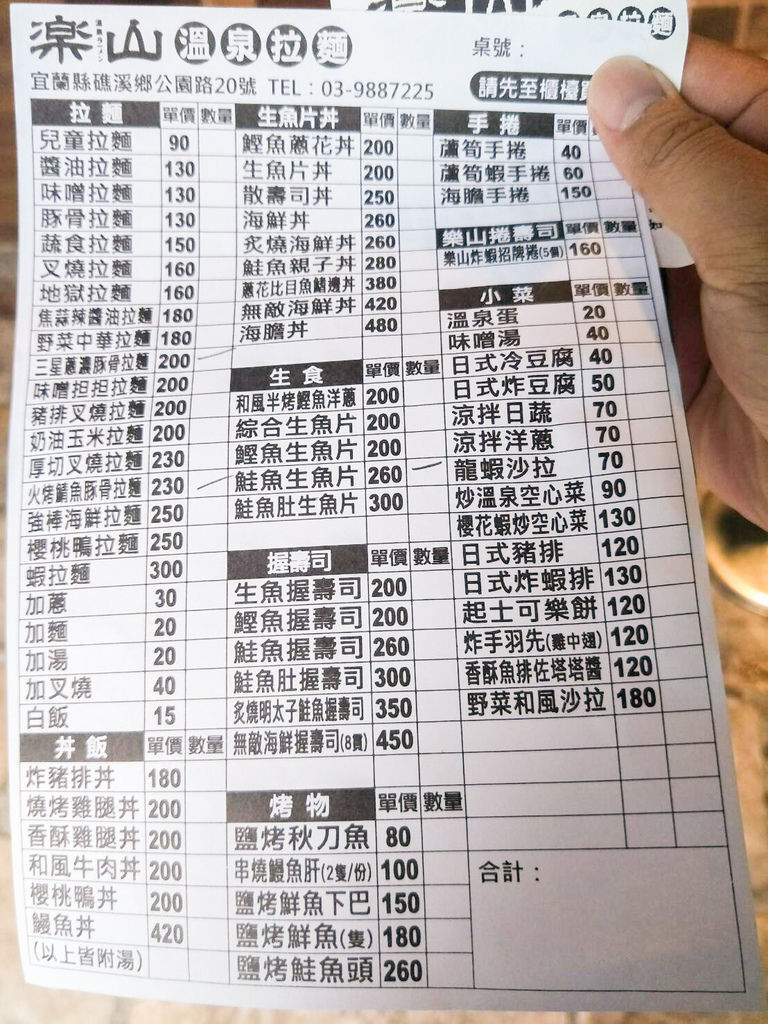 楽山 溫泉拉麵
溫泉ラーメン
桌號：
宜蘭縣礁溪鄉公園路20號 TEL：03-9887225
請先至櫃檯
拉麵 單價 數量
兒童拉麵 90
醬油拉麵 130
味噌拉麵 130
豚骨拉麵 130
蔬食拉麵 150
叉燒拉麵 160
地獄拉麵 160
焦蒜辣醬油拉麵 180
野菜中華拉麵 180
三星蔥濃豚骨拉麵 200
味噌担担拉麵 200
豬排叉燒拉麵 200
奶油玉米拉麵 200
厚切叉燒拉麵 230
火烤鯖魚豚骨拉麵 230
強棒海鮮拉麵 250
櫻桃鴨拉麵 250
蝦拉麵 300
加蔥 30
加麵 20
加湯 20
加叉燒 40
白飯 15
丼飯 單價 數量
炸豬排丼 180
燒烤雞腿丼 200
香酥雞腿丼 200
和風牛肉丼 200
櫻桃鴨丼 200
鰻魚丼 420
(以上皆附湯)
生魚片丼 單價 數量
鰹魚蔥花丼 200
生魚片丼 200
散壽司丼 250
海鮮丼 260
炙燒海鮮丼 260
鮭魚親子丼 280
蔥花比目魚鰭邊丼 380
無敵海鮮丼 420
海膽丼 480
生食 單價 數量
和風半烤鰹魚洋蔥 200
綜合生魚片 200
鰹魚生魚片 200
鮭魚生魚片 260
鮭魚肚生魚片 300
握壽司 單價 數量
生魚握壽司 200
鰹魚握壽司 200
鮭魚握壽司 260
鮭魚肚握壽司 300
炙燒明太子鮭魚握壽司 350
無敵海鮮握壽司(8貫) 450
烤物 單價 數量
鹽烤秋刀魚 80
串燒鰻魚肝(2隻/份) 100
鹽烤鮮魚下巴 150
鹽烤鮮魚(隻) 180
鹽烤鮭魚頭 260
手捲 單價
蘆筍手捲 40
蘆筍蝦手捲 60
海膽手捲 150
樂山捲壽司 單價 數量
樂山炸蝦招牌捲(5個) 160
小菜 單價 數量
溫泉蛋 20
味噌湯 40
日式冷豆腐 40
日式炸豆腐 50
涼拌日蔬 70
涼拌洋蔥 70
龍蝦沙拉 70
炒溫泉空心菜 90
櫻花蝦炒空心菜 130
日式豬排 120
日式炸蝦排 130
起士可樂餅 120
炸手羽先(雞中翅) 120
香酥魚排佐塔塔醬 120
野菜和風沙拉 180
合計：